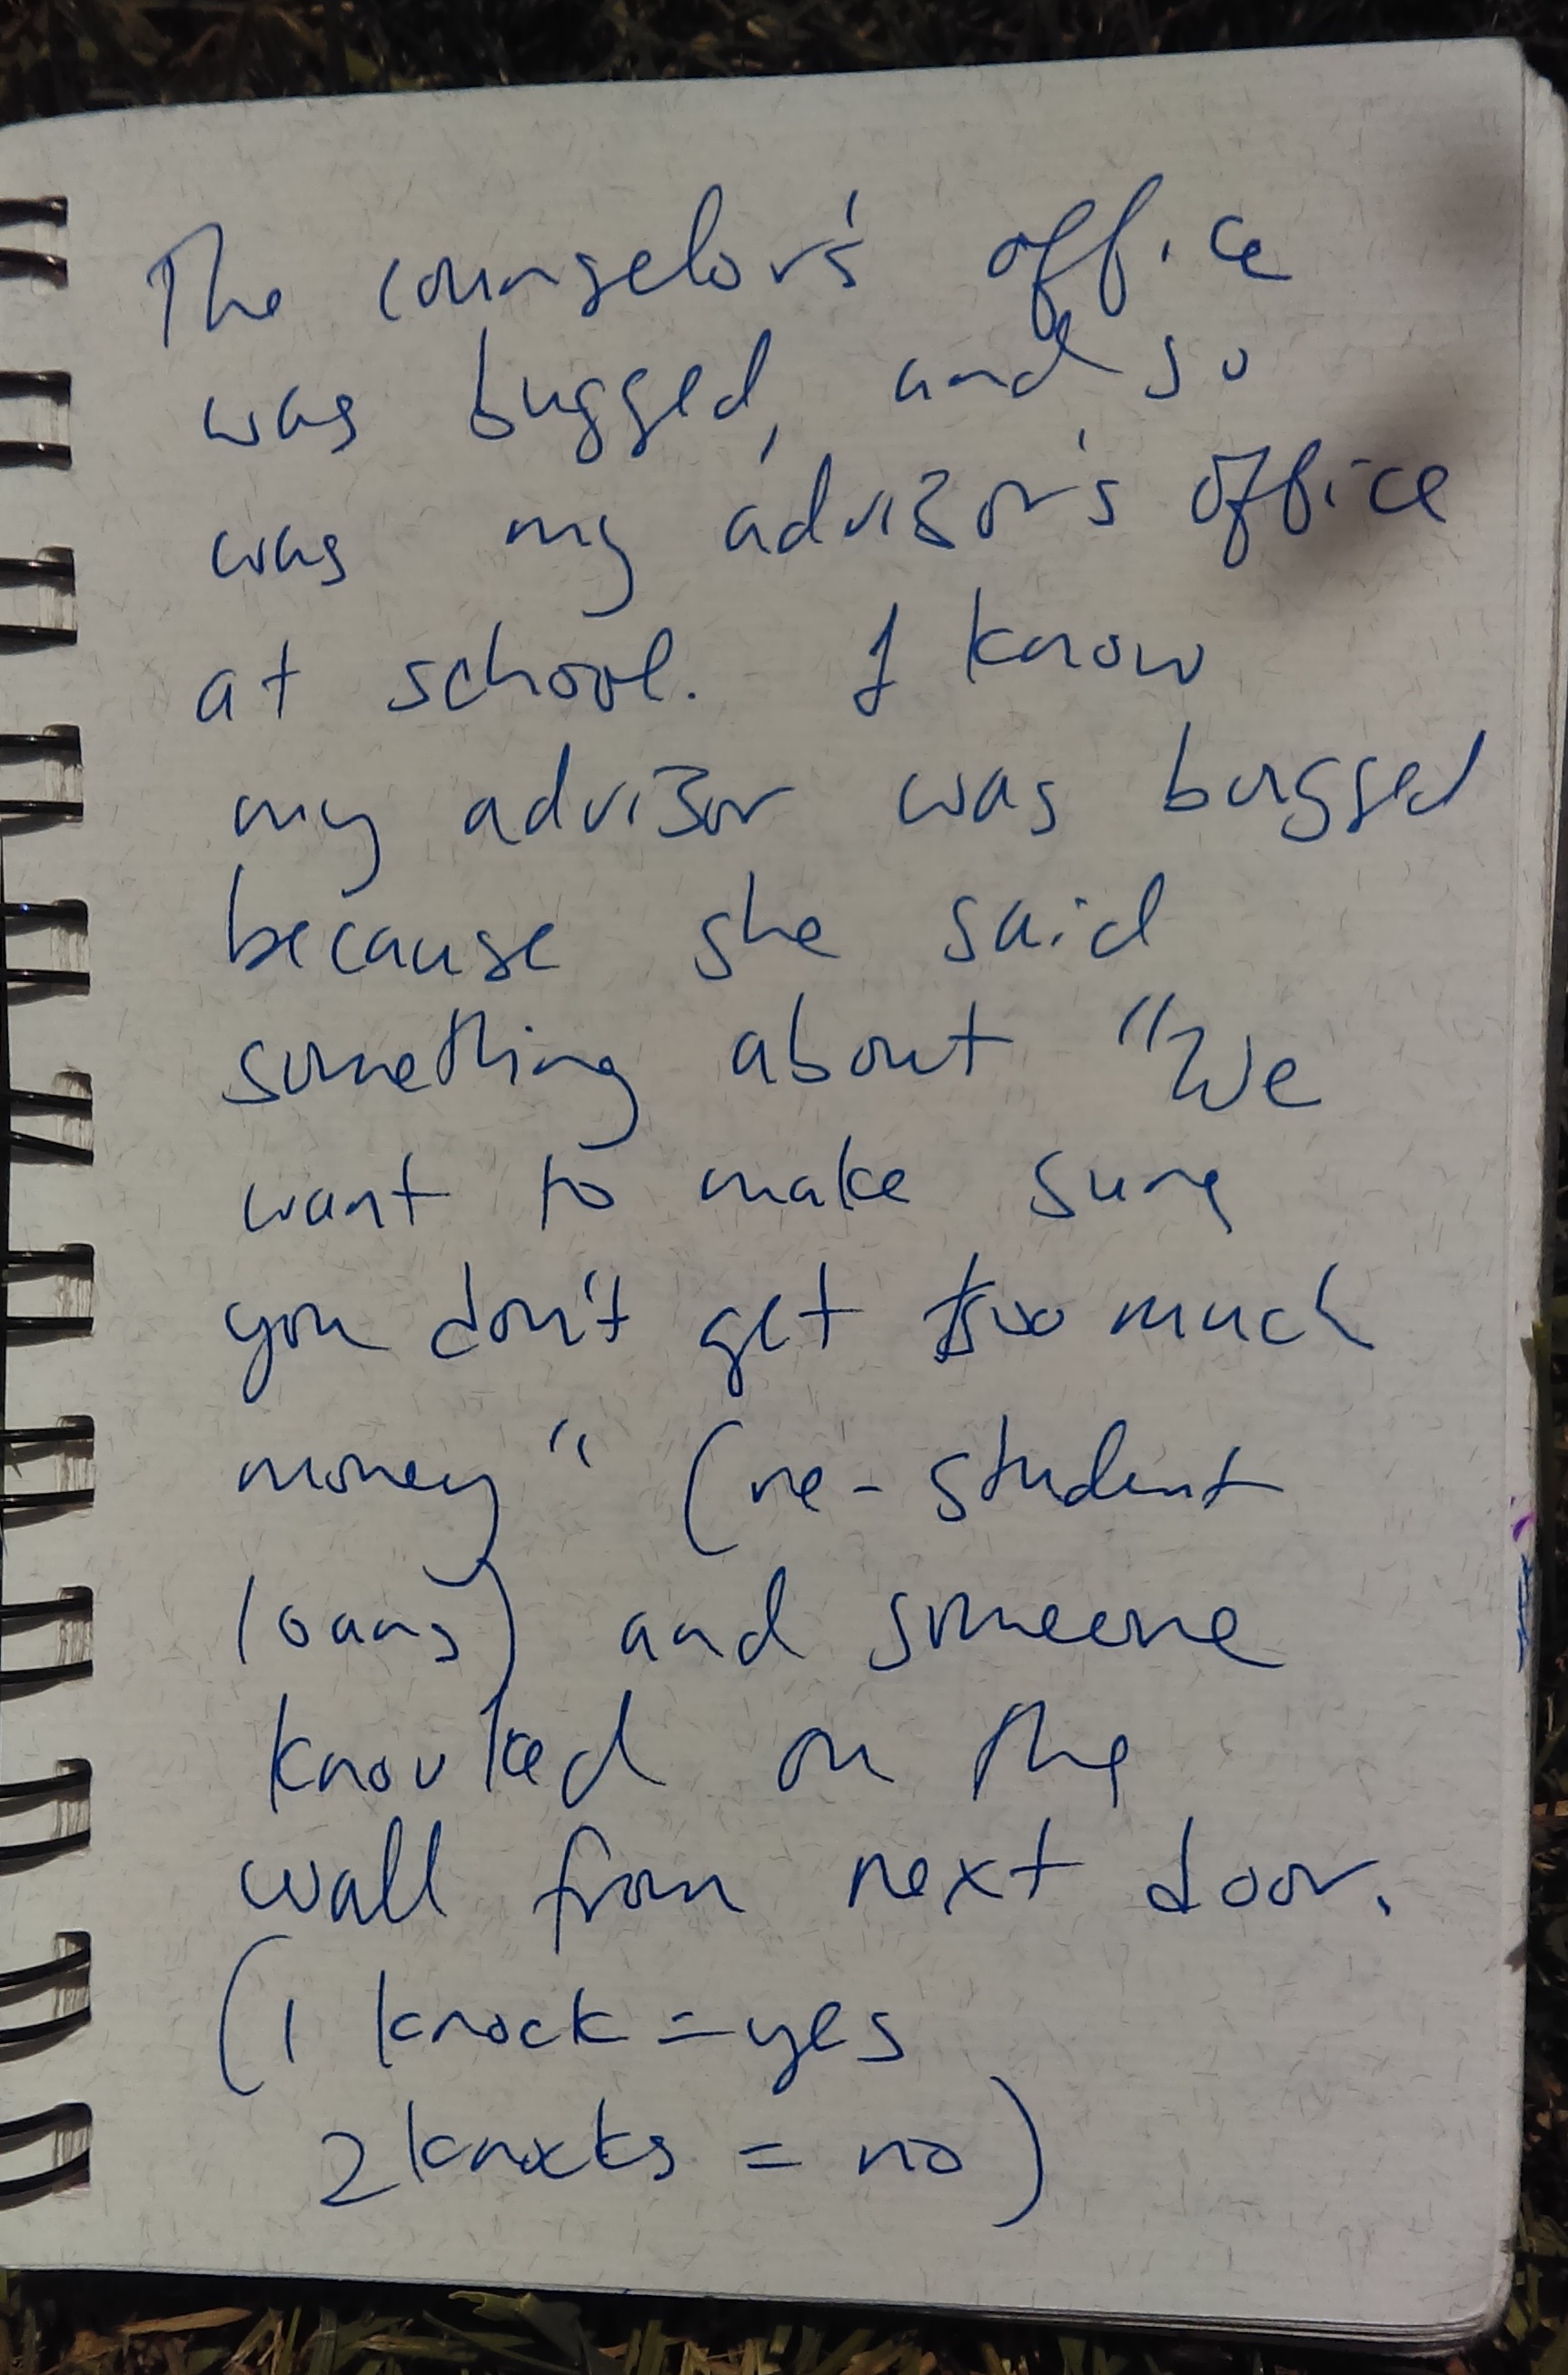 The counselor's office
was bugged, and so
was my advizor's office
at school. I know
my advizor was bugged
because she said
something about "We
want to make sure
you don't get too much
money" (re-student
loans) and someone
knocked on the
wall from next door.
(1 knock = yes
2 knocks = no)